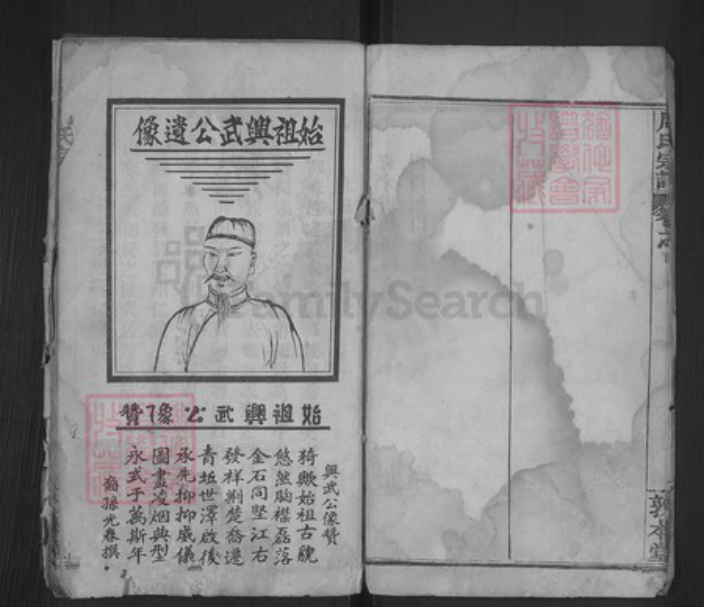 始祖興武公遺像
始祖興武公像贊
興武公像贊
猗歟始祖古貌
悠然胸襟磊落
金石同堅江右
發祥荆楚喬遷
青毡世澤啟後
承先抑抑威儀
圖畫凌烟典型
永式千萬斯年
裔孫光春撰
周氏宗譜
卷首
敦本堂
FamilySearch